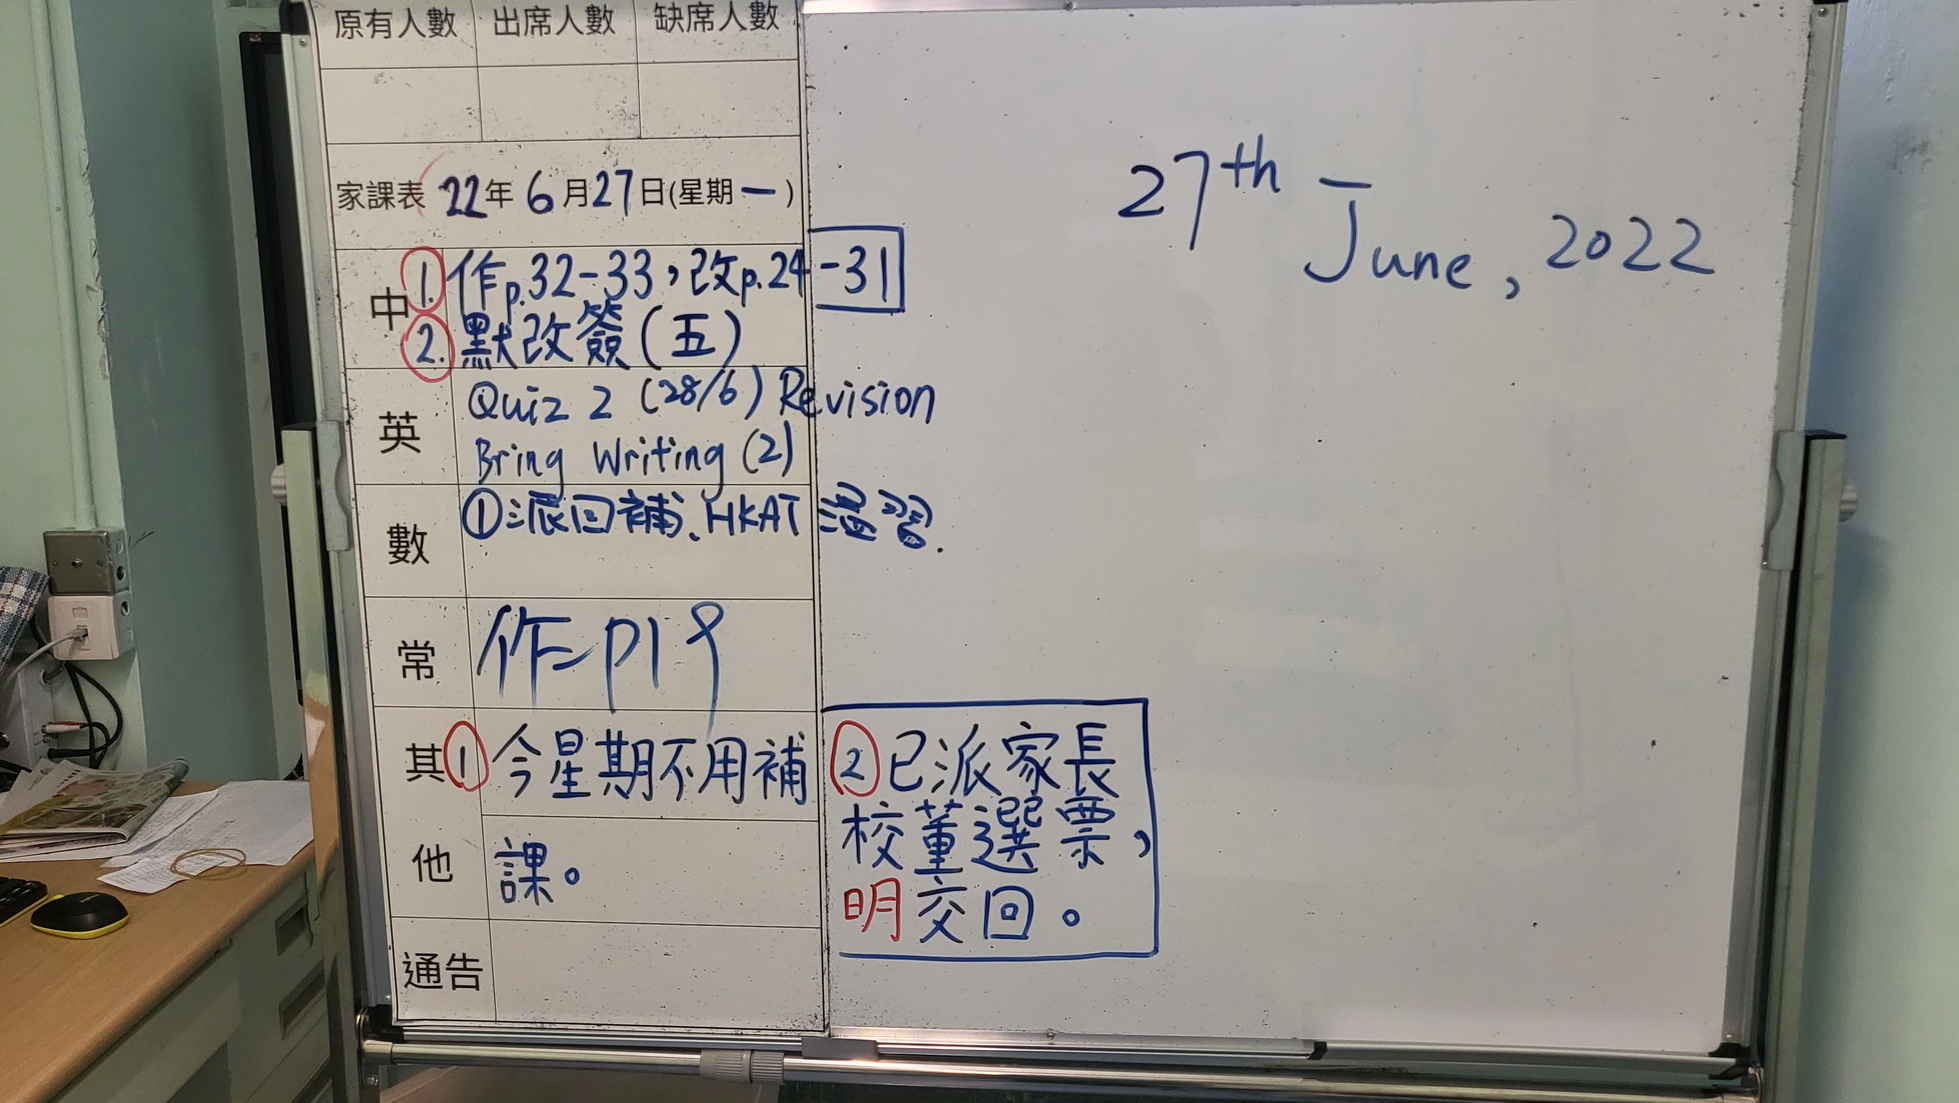 原有人數 出席人數 缺席人數
家課表 22年 6月27日(星期一)
27th June, 2022
中 1. 作p.32-33，改p.24-31
2. 默改簽(五)
英 Quiz 2 (28/6) Revision
Bring Writing (2)
數 ①派回補、HKAT 溫習.
常 作=p19
其他 ① 今星期不用補
課。
② 已派家長
校董選票，
明交回。
通告